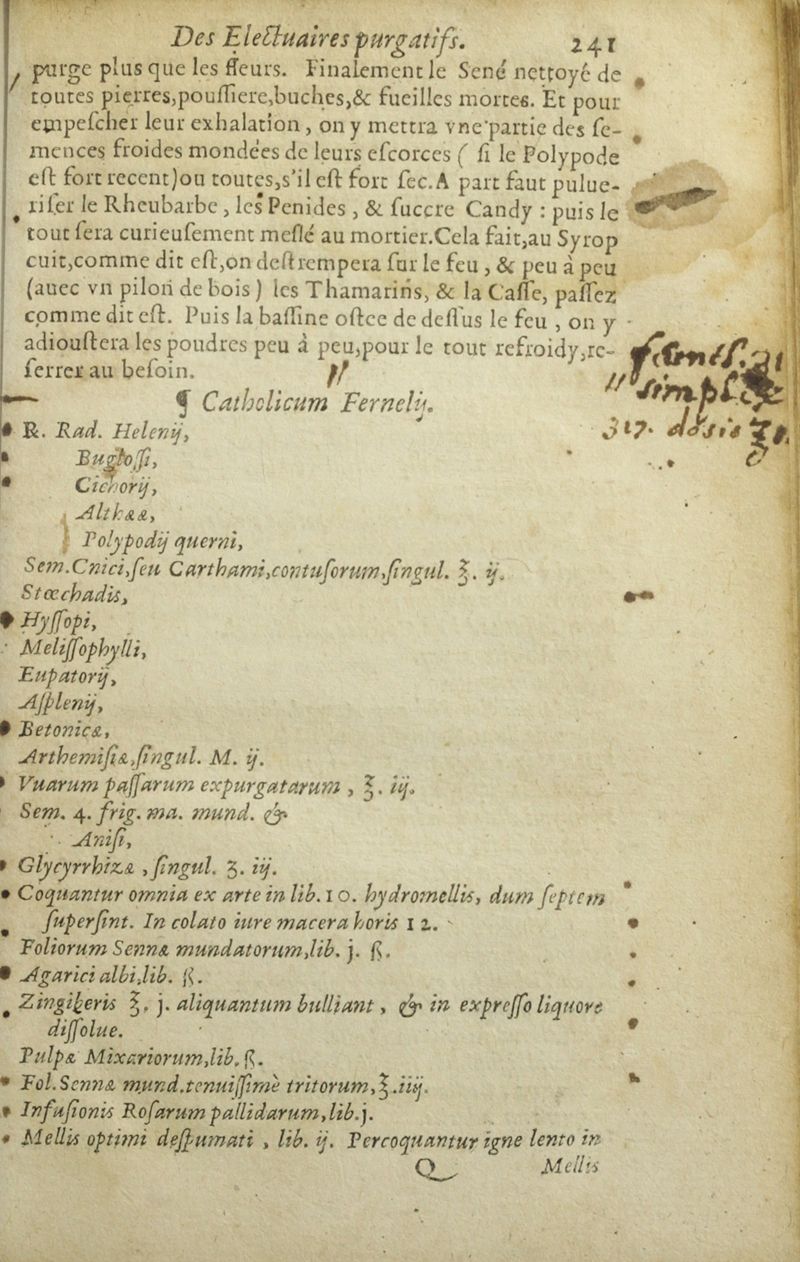 Des Electuaires purgatifs. 241
purge plus que les fleurs. Finalement le Sené nettoyé de
toutes pierres,pouſſiere,buches,& fueilles mortes. Et pour
empeſcher leur exhalation, on y mettra vne partie des ſe-
mences froides mondées de leurs eſcorces ( ſi le Polypode
eſt fort recent)ou toutes,s'il eſt fort ſec. A part faut pulue-
riſer le Rheubarbe, les Penides, & ſuccre Candy : puis le
tout ſera curieuſement meſlé au mortier. Cela fait,au Syrop
cuit,comme dit eſt,on deſtrempera ſur le feu, & peu à peu
(auec vn pilon de bois) les Thamarins, & la Caſſe, paſſez
comme dit eſt. Puis la baſſine oſtee de deſſus le feu, on y
adiouſtera les poudres peu à peu,pour le tout refroidy,re-
ſerrer au beſoin.
¶ Catholicum Fernelij.
℞. Rad. Helenij,
Bugloſſi,
Cichorij,
Althææ,
Polypodij querni,
Sem. Cnici,ſeu Carthami,contuſorum,ſingul. ℥. ij.
Stœchadis,
Hyſſopi,
Meliſſophylli,
Eupatorij,
Aſplenij,
Betonicæ,
Arthemiſiæ,ſingul. M. ij.
Vuarum paſſarum expurgatarum, ℥. iij.
Sem. 4. frig. ma. mund. &
Aniſi,
Glycyrrhizæ, ſingul. ʒ. iij.
Coquantur omnia ex arte in lib. 10. hydromellis, dum ſeptem
ſuperſint. In colato iure macera horis 12.
Foliorum Sennæ mundatorum,lib. j. ß.
Agarici albi,lib. ß.
Zingiberis ℥. j. aliquantum bulliant, & in expreſſo liquore
diſſolue.
Pulpæ Mixariorum,lib. ß.
Fol. Sennæ mund. tenuiſſimè tritorum, ℥. iiij.
Infuſionis Roſarum pallidarum,lib. j.
Mellis optimi deſpumati, lib. ij. Percoquantur igne lento in
Q Mellis
simpl
317. dosis